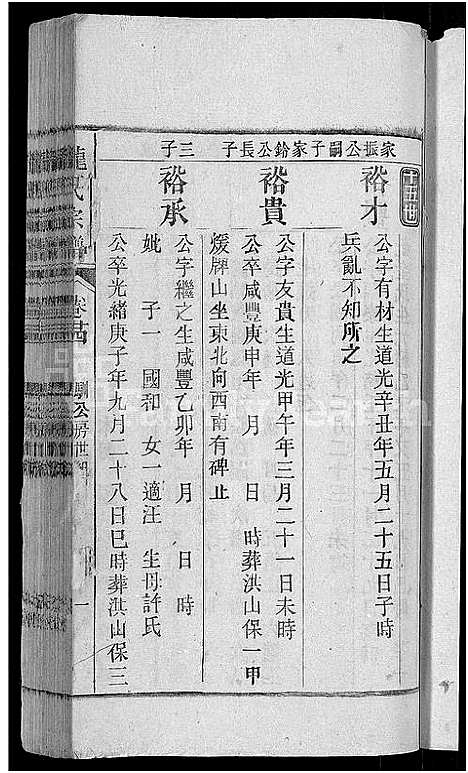 十五世
家振公嗣子
裕才
公字有材生道光辛丑年五月二十五日子時
兵亂不知所之
家鈴公長子
裕貴
公字友貴生道光甲午年三月二十一日未時
公卒咸豐庚申年 月 日 時葬洪山保一甲
煖牌山坐東北向西南有碑止
三子
裕承
公字繼之生咸豐乙卯年 月 日 時
妣 子一 國和 女一適汪 生母許氏
公卒光緒庚子年九月二十八日巳時葬淇山保三
龍氏宗譜
卷
公房世
一